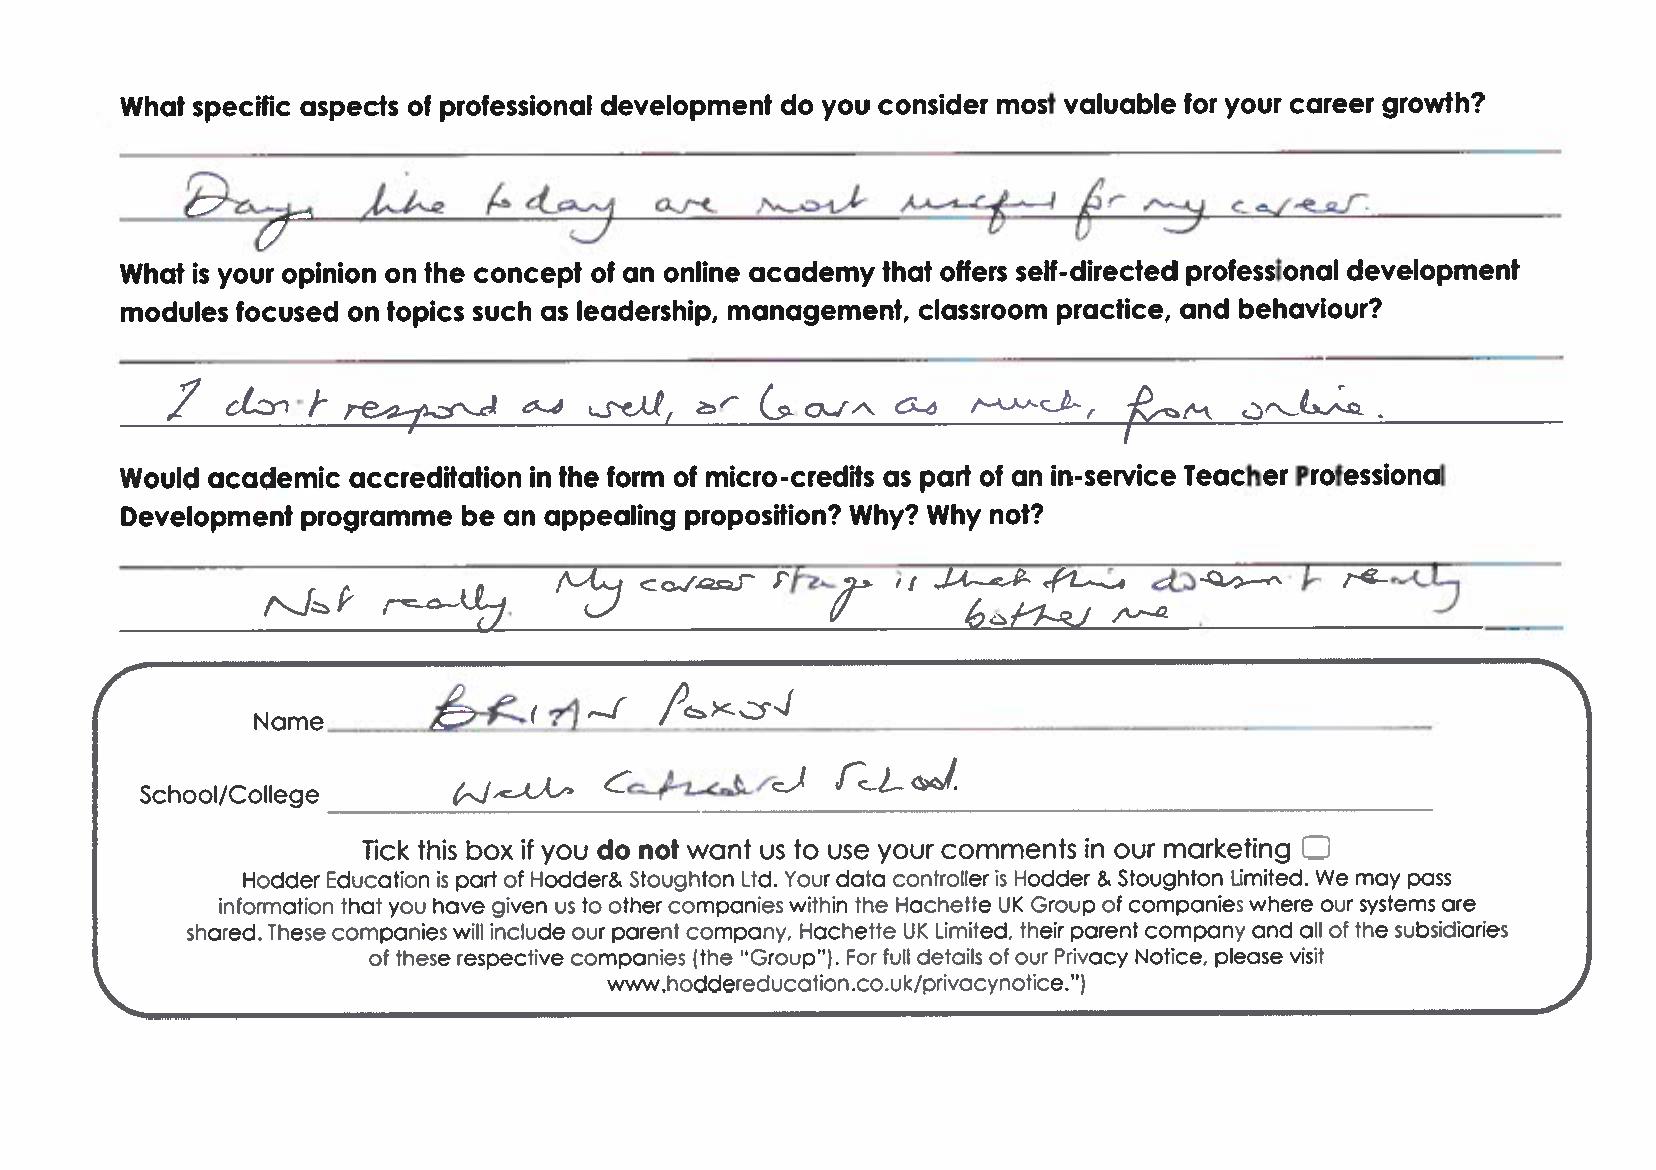 What specific aspects of professional development do you consider most valuable for your career growth?
Days like today are most useful for my career.
What is your opinion on the concept of an online academy that offers self-directed professional development
modules focused on topics such as leadership, management, classroom practice, and behaviour?
I don't respond as well, or learn as much, from online.
Would academic accreditation in the form of micro-credits as part of an in-service Teacher Professional
Development programme be an appealing proposition? Why? Why not?
Not really. My career stage is that this doesn't really
bother me.
Name BRIAN Poxon
School/College Wells Cathedral School.
Tick this box if you do not want us to use your comments in our marketing
Hodder Education is part of Hodder& Stoughton Ltd. Your data controller is Hodder & Stoughton Limited. We may pass
information that you have given us to other companies within the Hachette UK Group of companies where our systems are
shared. These companies will include our parent company, Hachette UK Limited, their parent company and all of the subsidiaries
of these respective companies (the "Group"). For full details of our Privacy Notice, please visit
www.hoddereducation.co.uk/privacynotice.")